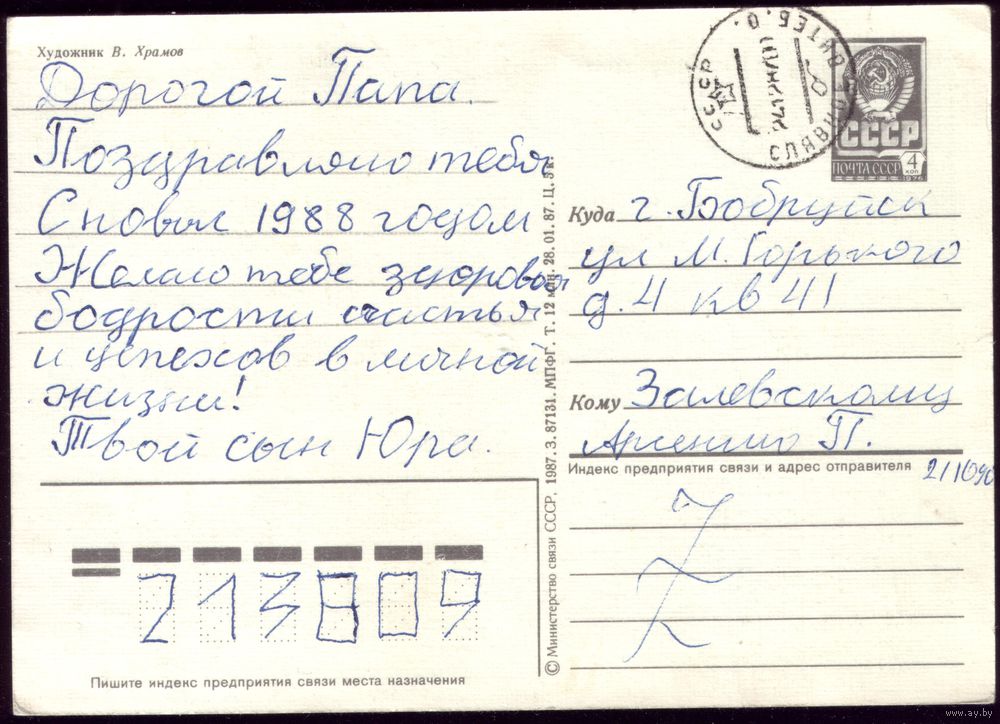 Художник В. Храмов
Дорогой Папа.
Поздравляю тебя
С новым 1988 годом
Желаю тебе здоровья
бодрости счастья
и успехов в личной
жизни!
Твой сын Юра.
213809
Пишите индекс предприятия связи места назначения
© Министерство связи СССР, 1987. З. 87131. МПФГ. Т. 12 млн. 28. 01. 87. Ц. 5 к.
СССР
ВИТЕБ. О.
СССР
ПОЧТА СССР
4 КОП
1976
Куда г. Бобруйск
ул М. Горького
д. 4 кв 41
Кому Залевскому
Арсению П.
Индекс предприятия связи и адрес отправителя
www.ay.by